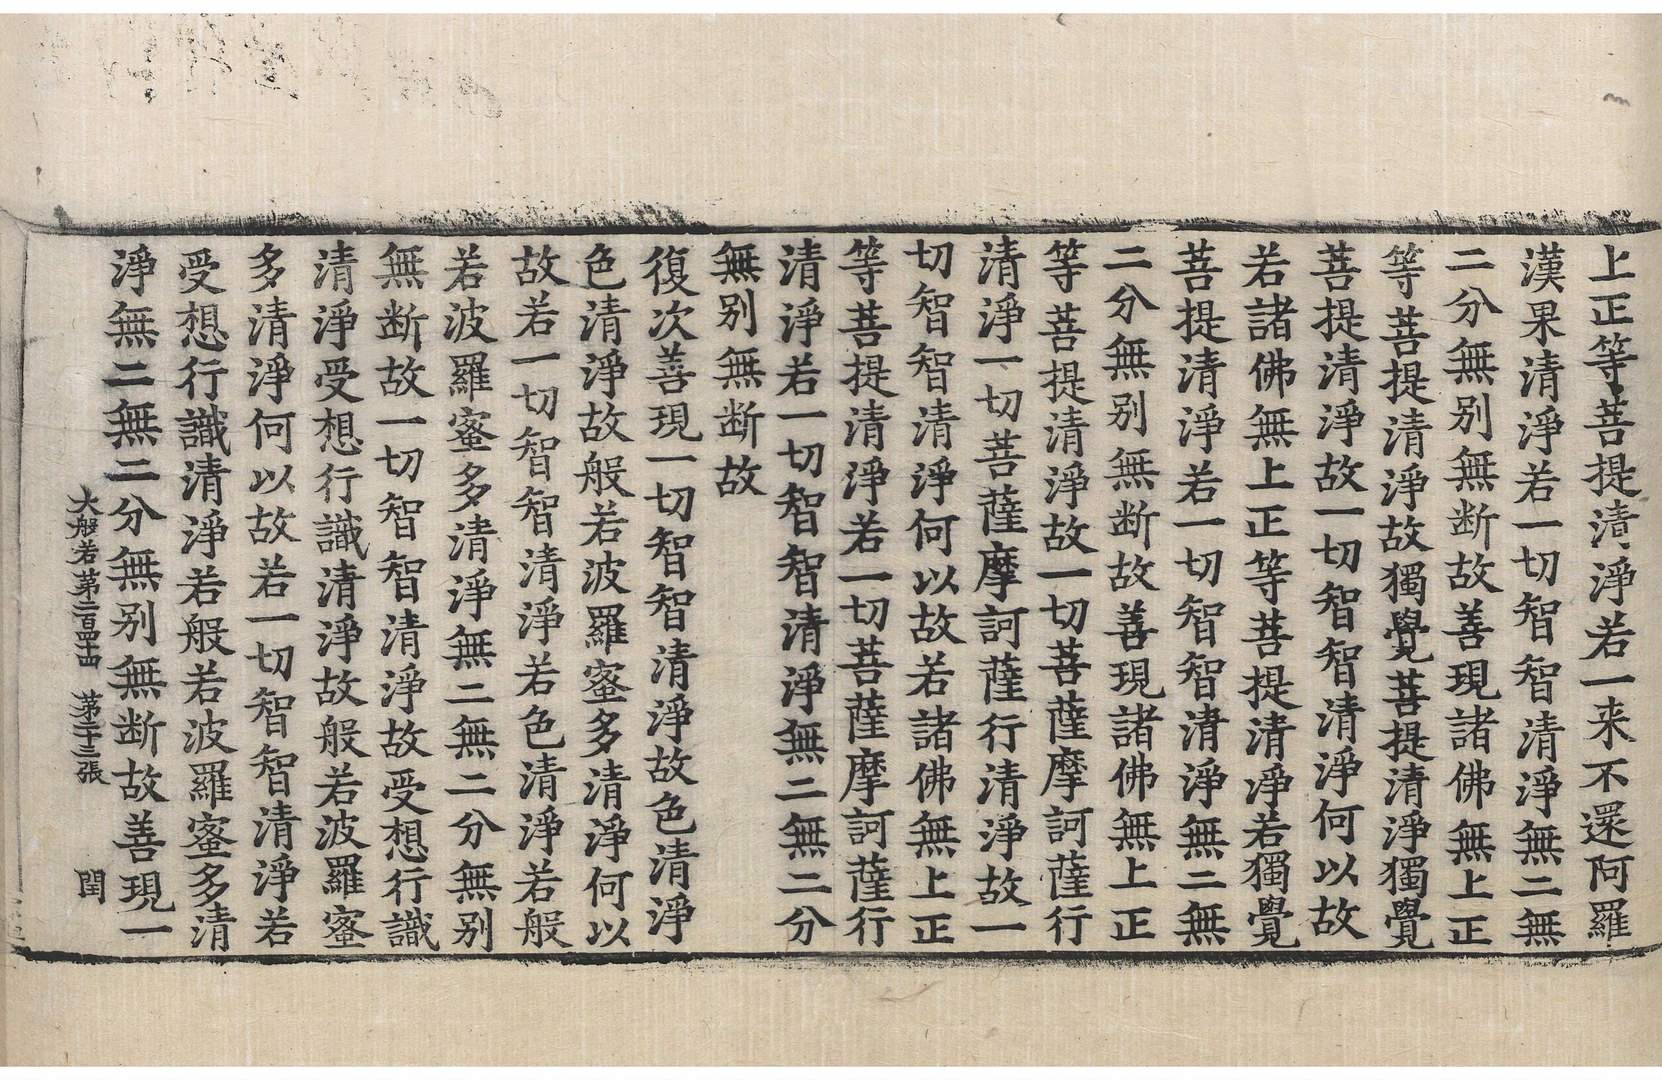 上正等菩提清淨若一来不還阿羅
漢果清淨若一切智智清淨無二無
二分無别無断故善現諸佛無上正
等菩提清淨故獨覺菩提清淨獨覺
菩提清淨故一切智智清淨何以故
若諸佛無上正等菩提清淨若獨覺
菩提清淨若一切智智清淨無二無
二分無别無断故善現諸佛無上正
等菩提清淨故一切菩薩摩訶薩行
清淨一切菩薩摩訶薩行清淨故一
切智智清淨何以故若諸佛無上正
等菩提清淨若一切菩薩摩訶薩行
清淨若一切智智清淨無二無二分
無别無断故
復次善現一切智智清淨故色清淨
色清淨故般若波羅蜜多清淨何以
故若一切智智清淨若色清淨若般
若波羅蜜多清淨無二無二分無别
無断故一切智智清淨故受想行識
清淨受想行識清淨故般若波羅蜜
多清淨何以故若一切智智清淨若
受想行識清淨若般若波羅蜜多清
淨無二無二分無别無断故善現一
大般若第二百四十四 第二十三張 閏